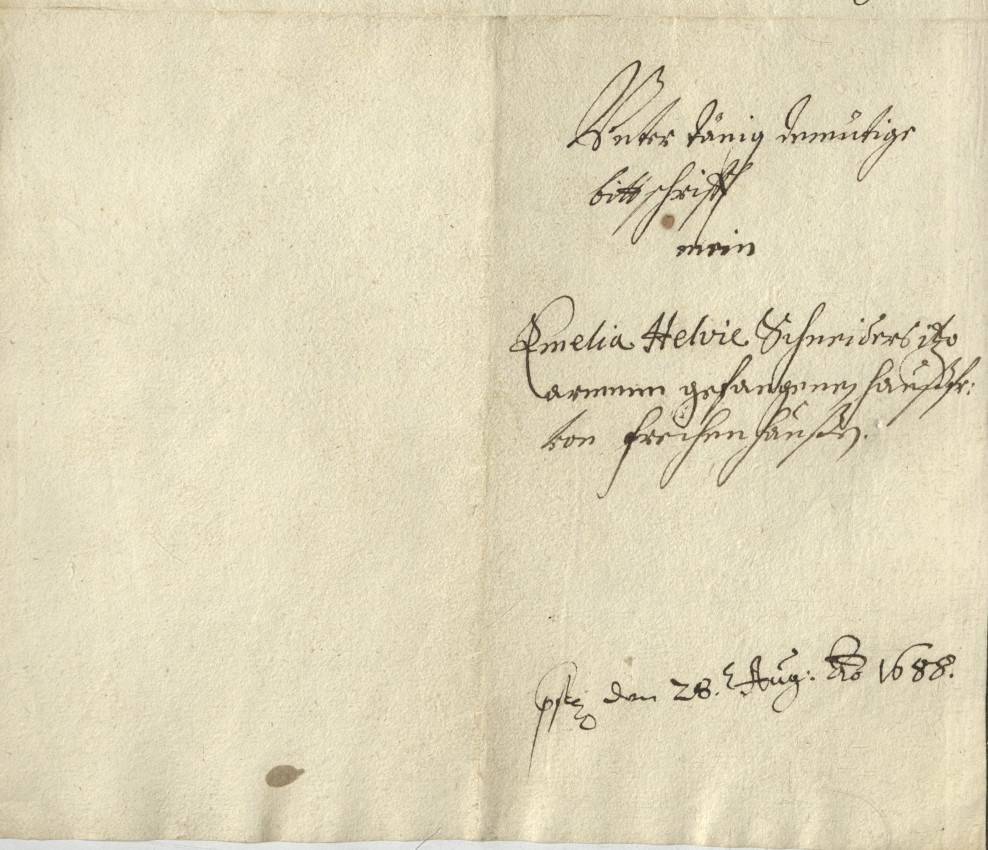 Vnter tänig demütige
bittschrifft
mein
Emelia Helvie Schneiders itzo
armenn gefangenen haußfr:
von freihenhäußen.
pstz den 28. Aug: Ao 1688.